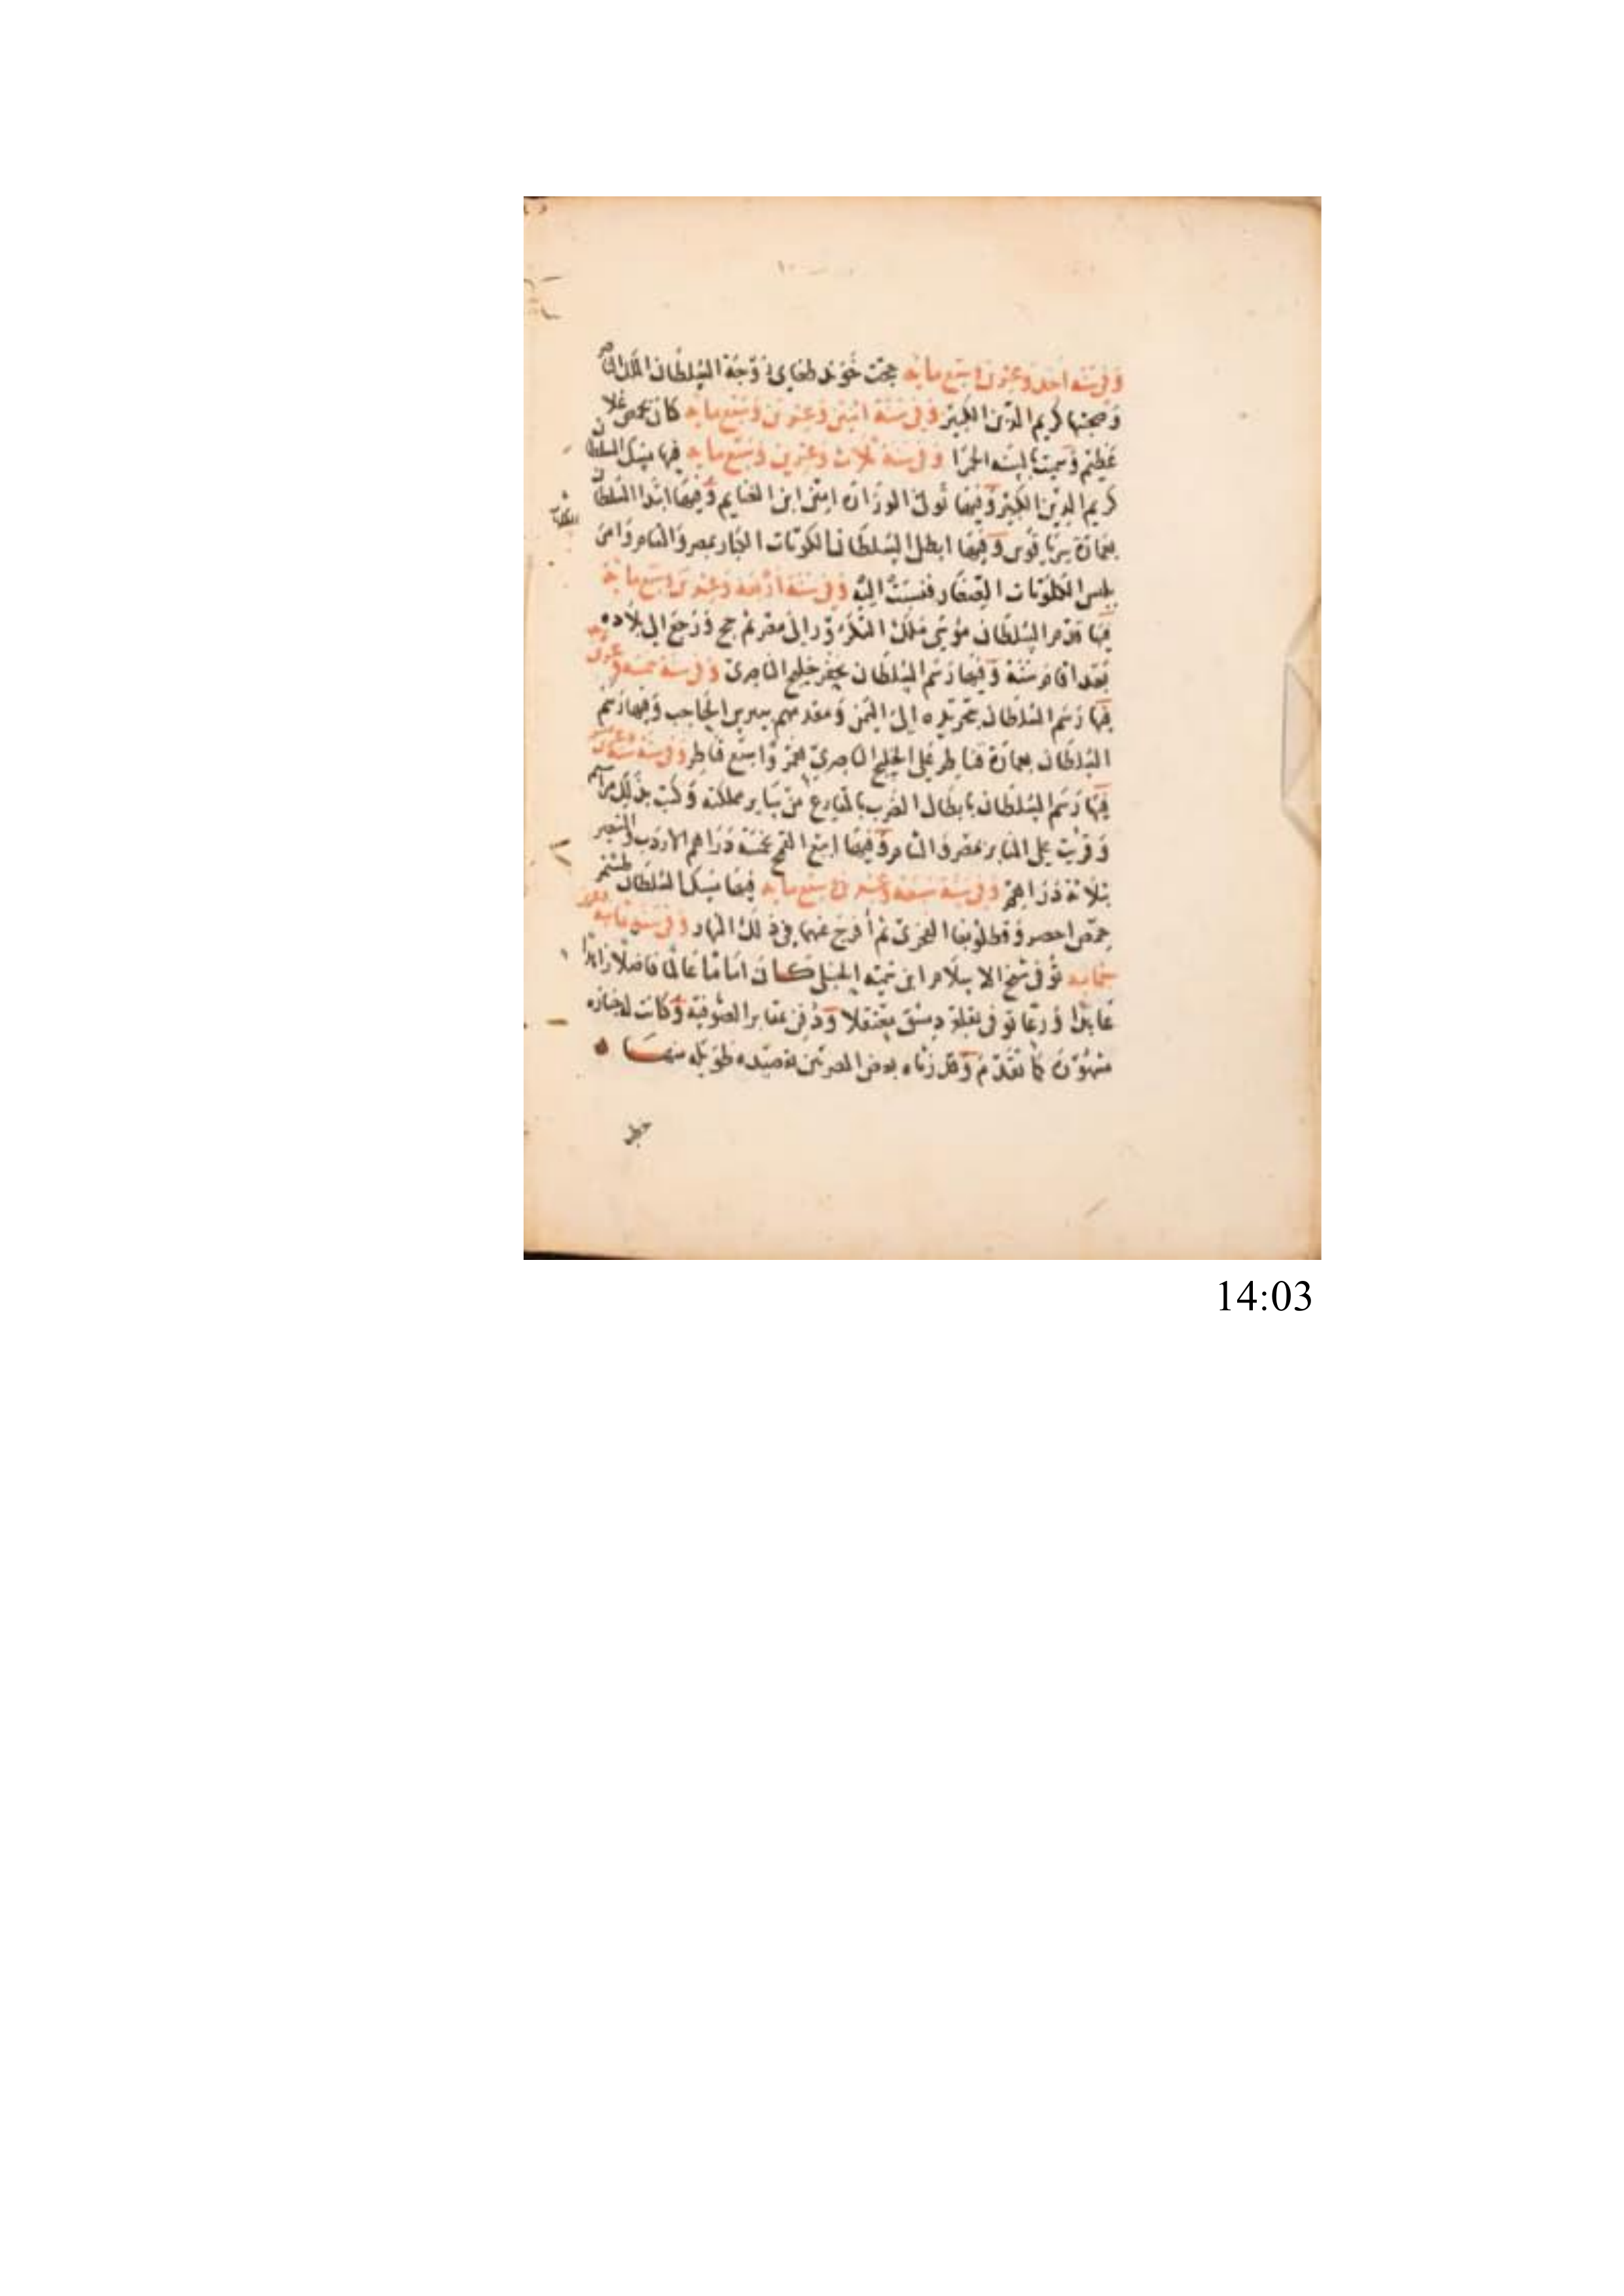 وفي سنة احدي وعشرين وسبع مايه حجت خوند طغاي زوجة السلطان الملك الناصر
وصحبتها كريم الدين الكبير وفي سنة اثنين وعشرين وسبع مايه كان بمصر غلا
عظيم وسميت بالسنه الحمرا وفي سنة ثلاث وعشرين وسبع مايه فيها مسك السلطان
كريم الدين الكبير وفيها تولي الوزاره امين ابن الغنايم وفيها ابتدا السلطان
بعمارة سرياقوس وفيها ابطل السلطان الكوتات الكبار بمصر والشام وامر
بلبس الكلوتات الصغار فنسبت اليه وفي سنة اربعة وعشرين وسبع مايه
فيها قدم السلطان موسي ملك التكرور الي مصر ثم حج ورجع الي بلاده
بعد اقام سنة وفيها رسم السلطان بحفر خليج الناصري وفي سنة خمسه وعشرين
فيها رسم السلطان بتجريده الي اليمن ومقدمهم بيبرس الحاجب وفيها رسم
السلطان بعمارة قناطر علي الخليج الناصري فعمر واسبع قناطر وفي سنة ستة وعشرين
فيها رسم السلطان بابطال الضرب بالمقارع من ساير مملكته وكتب بذلك مراسيم
وقريت علي المنابر بمصر والشام وفيها ابيع القمح بخمسة دراهم الاردب والشعير
بثلاثة دراهم وفي سنة سبعة وعشرين وسبع مايه فيها مسك السلطان طشتمر
حمص اخضر وقطلوبغا الفخري ثم أفرج عنهما في ذلك النهار وفي سنة ثمانيه وعشرين
توفي شيخ الاسلام ابن تيميه الحنبلي كان اماما عالما فاضلا زاهدا
عابدا ورعا توفي بقلعة دمشق معتقلا ودفن بمقابر الصوفية وكانت له جنازه
مشهورة كما تقدم وقد رثاه بعض المصريين بقصيده طويله منها
14:03